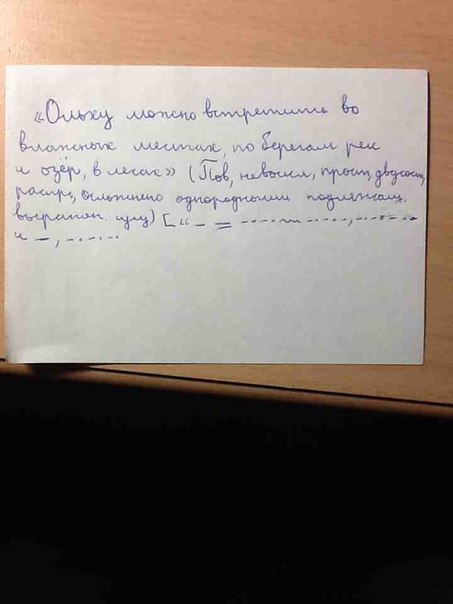 «Ольху можно встретить во
влажных местах, по берегам рек
и озёр, в лесах» (Пов, невоскл, прост, двусост,
распр, осложнено однородными подлежащ.
) [„ – =
и –,